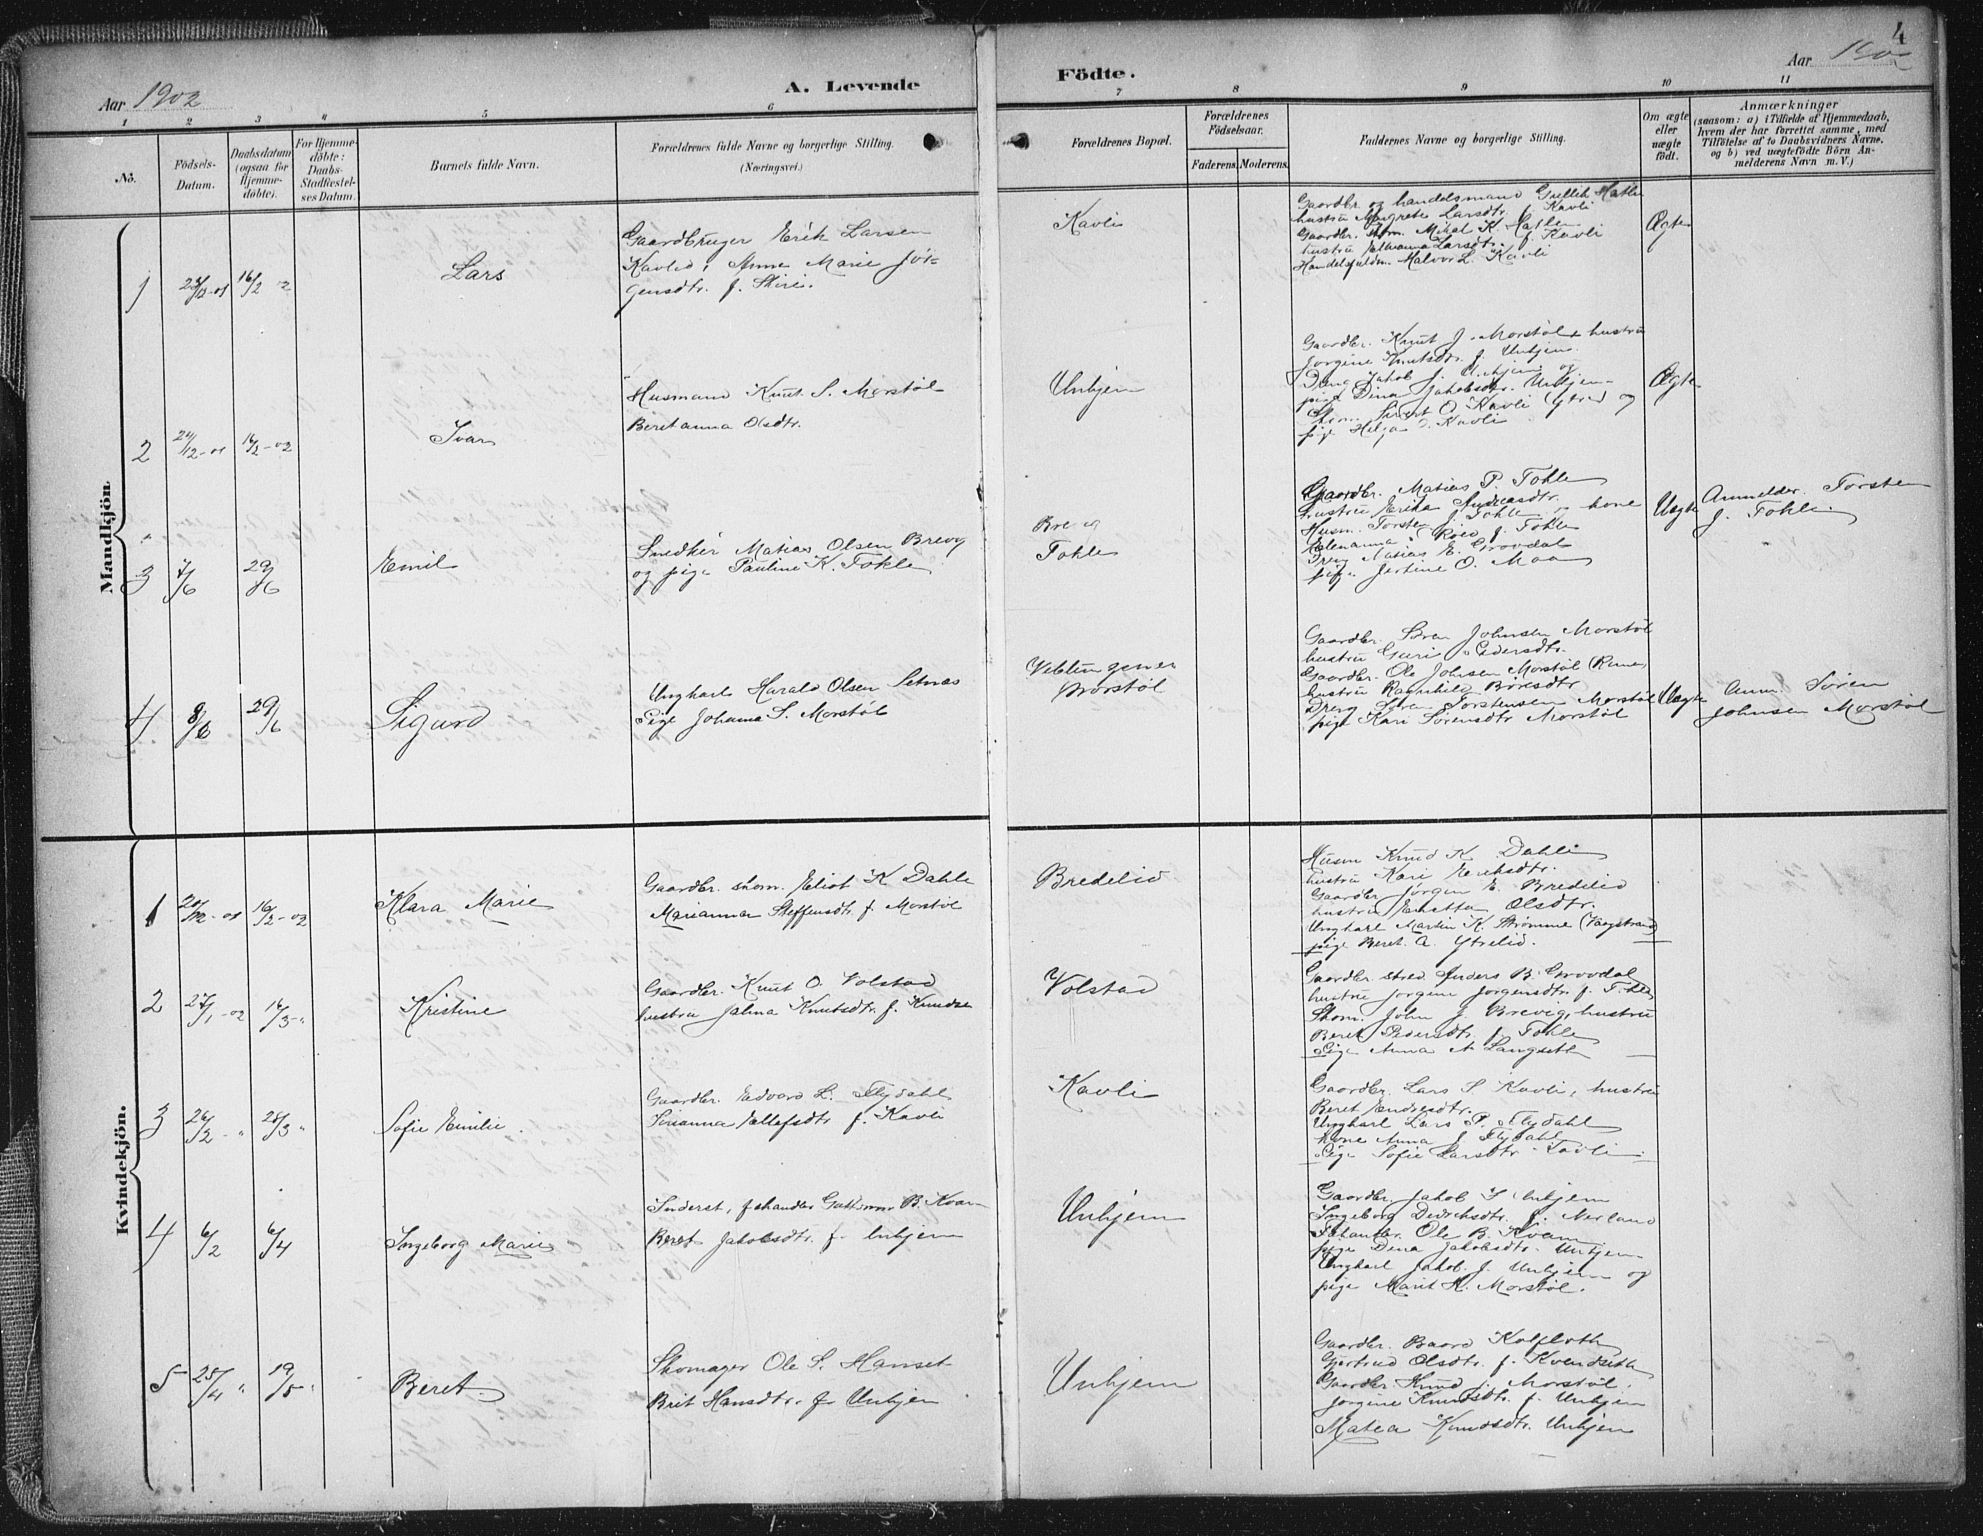 4
Aar 1902
A. Levende
Födte.
Aar 1902
1 2 3 4 5 6 7 8 9 10 11
No.
Födsels-
Datum.
Daabsdatum
(ogsaa for
Hjemme-
døbte).
For Hjemme-
døbte:
Daabs-
Stadfæstel-
ses Datum.
Barnets fulde Navn.
Forældrenes fulde Navne og borgerlige Stilling.
(Næringsvei.)
Forældrenes Bopæl.
Forældrenes
Födselsaar.
Faderens. Moderens.
Faddernes Navne og borgerlige Stilling.
Om ægte
eller
uægte
födt.
Anmærkninger
(saasom: a) i Tilfælde af Hjemmedaab,
hvem der har forrettet samme, med
Tilföielse af to Daabsvidners Navne,
og b) ved uægtefödte Börn An-
melderens Navn m. V.)
Mandkjön.
1
16/2
Lars
Gaardbruger Erik Larsen
Kavli, Anne Marie Jör-
gensdtr. f. Skiri.
Kavli
Gaardbr og handelsmand
hustru Margrete Larsdtr. f. Kavli
Gaardbr. Mikal K. Hatle
hustru Larsdtr. f. Kavli
Halvor L. Kavli
Ægte
2
24/12-01
16/2-02
Ivar
Husmand Knut S. Morstøl
Beretanna Olsdtr.
Unhjem
Gaardbr. Knut J. Morstøl, hustru
Jorgine Knutsdtr. f. Unhjem.
Dreng Jakob J. Unhjem og
pige Dina Jakobsdtr. Unhjem
Sivert O. Kavli (ytre) og
pige Helga O. Kavli
Ægte
3
7/6
29/6
Emil
Snedker Matias Olsen Brevig
og pige Pauline K. Tokle
Brevig
Tokle
Gaardbr. Matias P. Tokle
hustru Erika Andreasdtr.
Husm. Torsten J. Tokle, kone
Elenanna f. Tokle
Dreng Matias E. Grovdal
pige Jertine O. Maa
Uægte
Anmelder. Torsten
J. Tokle.
4
8/6
29/6
Sigurd
Ungkarl Harald Olsen Setnæs
Pige Johanna S. Morstøl
Veblungsnes
Morstøl
Gaardbr. Søren Johnsen Morstøl
hustru Guri Pedersdtr.
Gaardbr. Ole Johnsen Morstøl
hustru Ragnhild Børesdtr
Dreng Søren Torstensen Morstøl
pige Kari Sørensdtr Morstøl
Uægte
Anm. Søren
Johnsen Morstøl
Kvindekjön.
1
16/2-02
Klara Marie
Gaardbr. skom. Eliot K Dahle
Marianna Steffensdtr. f. Morstøl
Bredelid
Husm Knud K. Dahle
hustru Kari Eriksdtr.
Gaardbr Jørgen E. Bredelid
hustru Olsdtr.
Ungkarl Martin K. Strømme (Vaagstrand)
pige Beret A. Ytrelid.
2
27/1-02
16/3 "
Kristine
Gaardbr. Knut O. Volstad
hustru Jalina Knutsdtr. f. Knudse
Volstad
Gaardbr. Anders B. Grovdal
hustru Jorgine Jørgensdtr. f. Tokle
Skom. John J. Brevig, hustru
Beret Pedersdtr. f. Tokle
Pige Anna A Langseth
3
26/2 - "
28/3 "
Sofie Emilie.
Gaardbr. Edvard L. Flydahl
Sirianna Ellefsdtr f. Kavli
Kavli
Gaardbr. Lars S. Kavli, hustru
Beret Endresdtr.
Ungkarl Lars P. Flydahl
Kone Anna J. Flydahl
Pige Sofie Larsdtr Kavli.
4
6/2
6/4
Ingeborg Marie
Inderst, B. Kvam
Beret Jakobsdtr. f. Unhjem
Unhjem
Gaardbr. Jakob S Unhjem
Ingeborg f. Nerland
Ole B. Kvam
pige Dina Jakobsdtr. Unhjem
Ungkarl Jakob. J. Unhjem og
pige Marit K. Morstøl.
5
25/4 "
19/5 "
Beret.
Skomager Ole S. Hanset
Brit Hansdtr. f. Unhjem
Unhjem
Gaardbr. Baard Kolfloth
Gjertrud Olsdtr. f. Kvandseth
Gaardbr. Knud J. Morstøl.
Jorgine Knudsdtr. f. Unhjem
Matea Knudsdtr. Unhjem